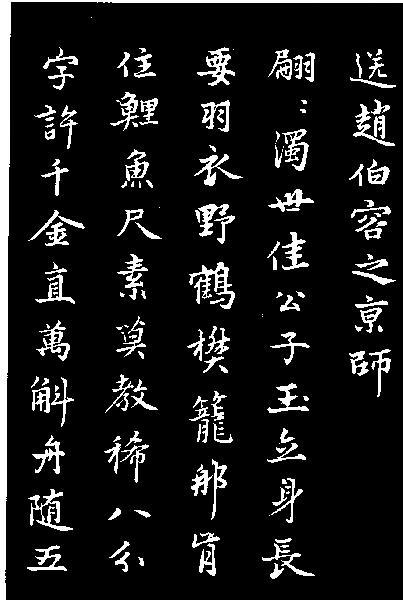 送趙伯容之京師
翩〻濁世佳公子玉立身長
要羽衣野鶴樊籠那肯
住鯉魚尺素莫教稀八分
字許千金直萬斛舟随五